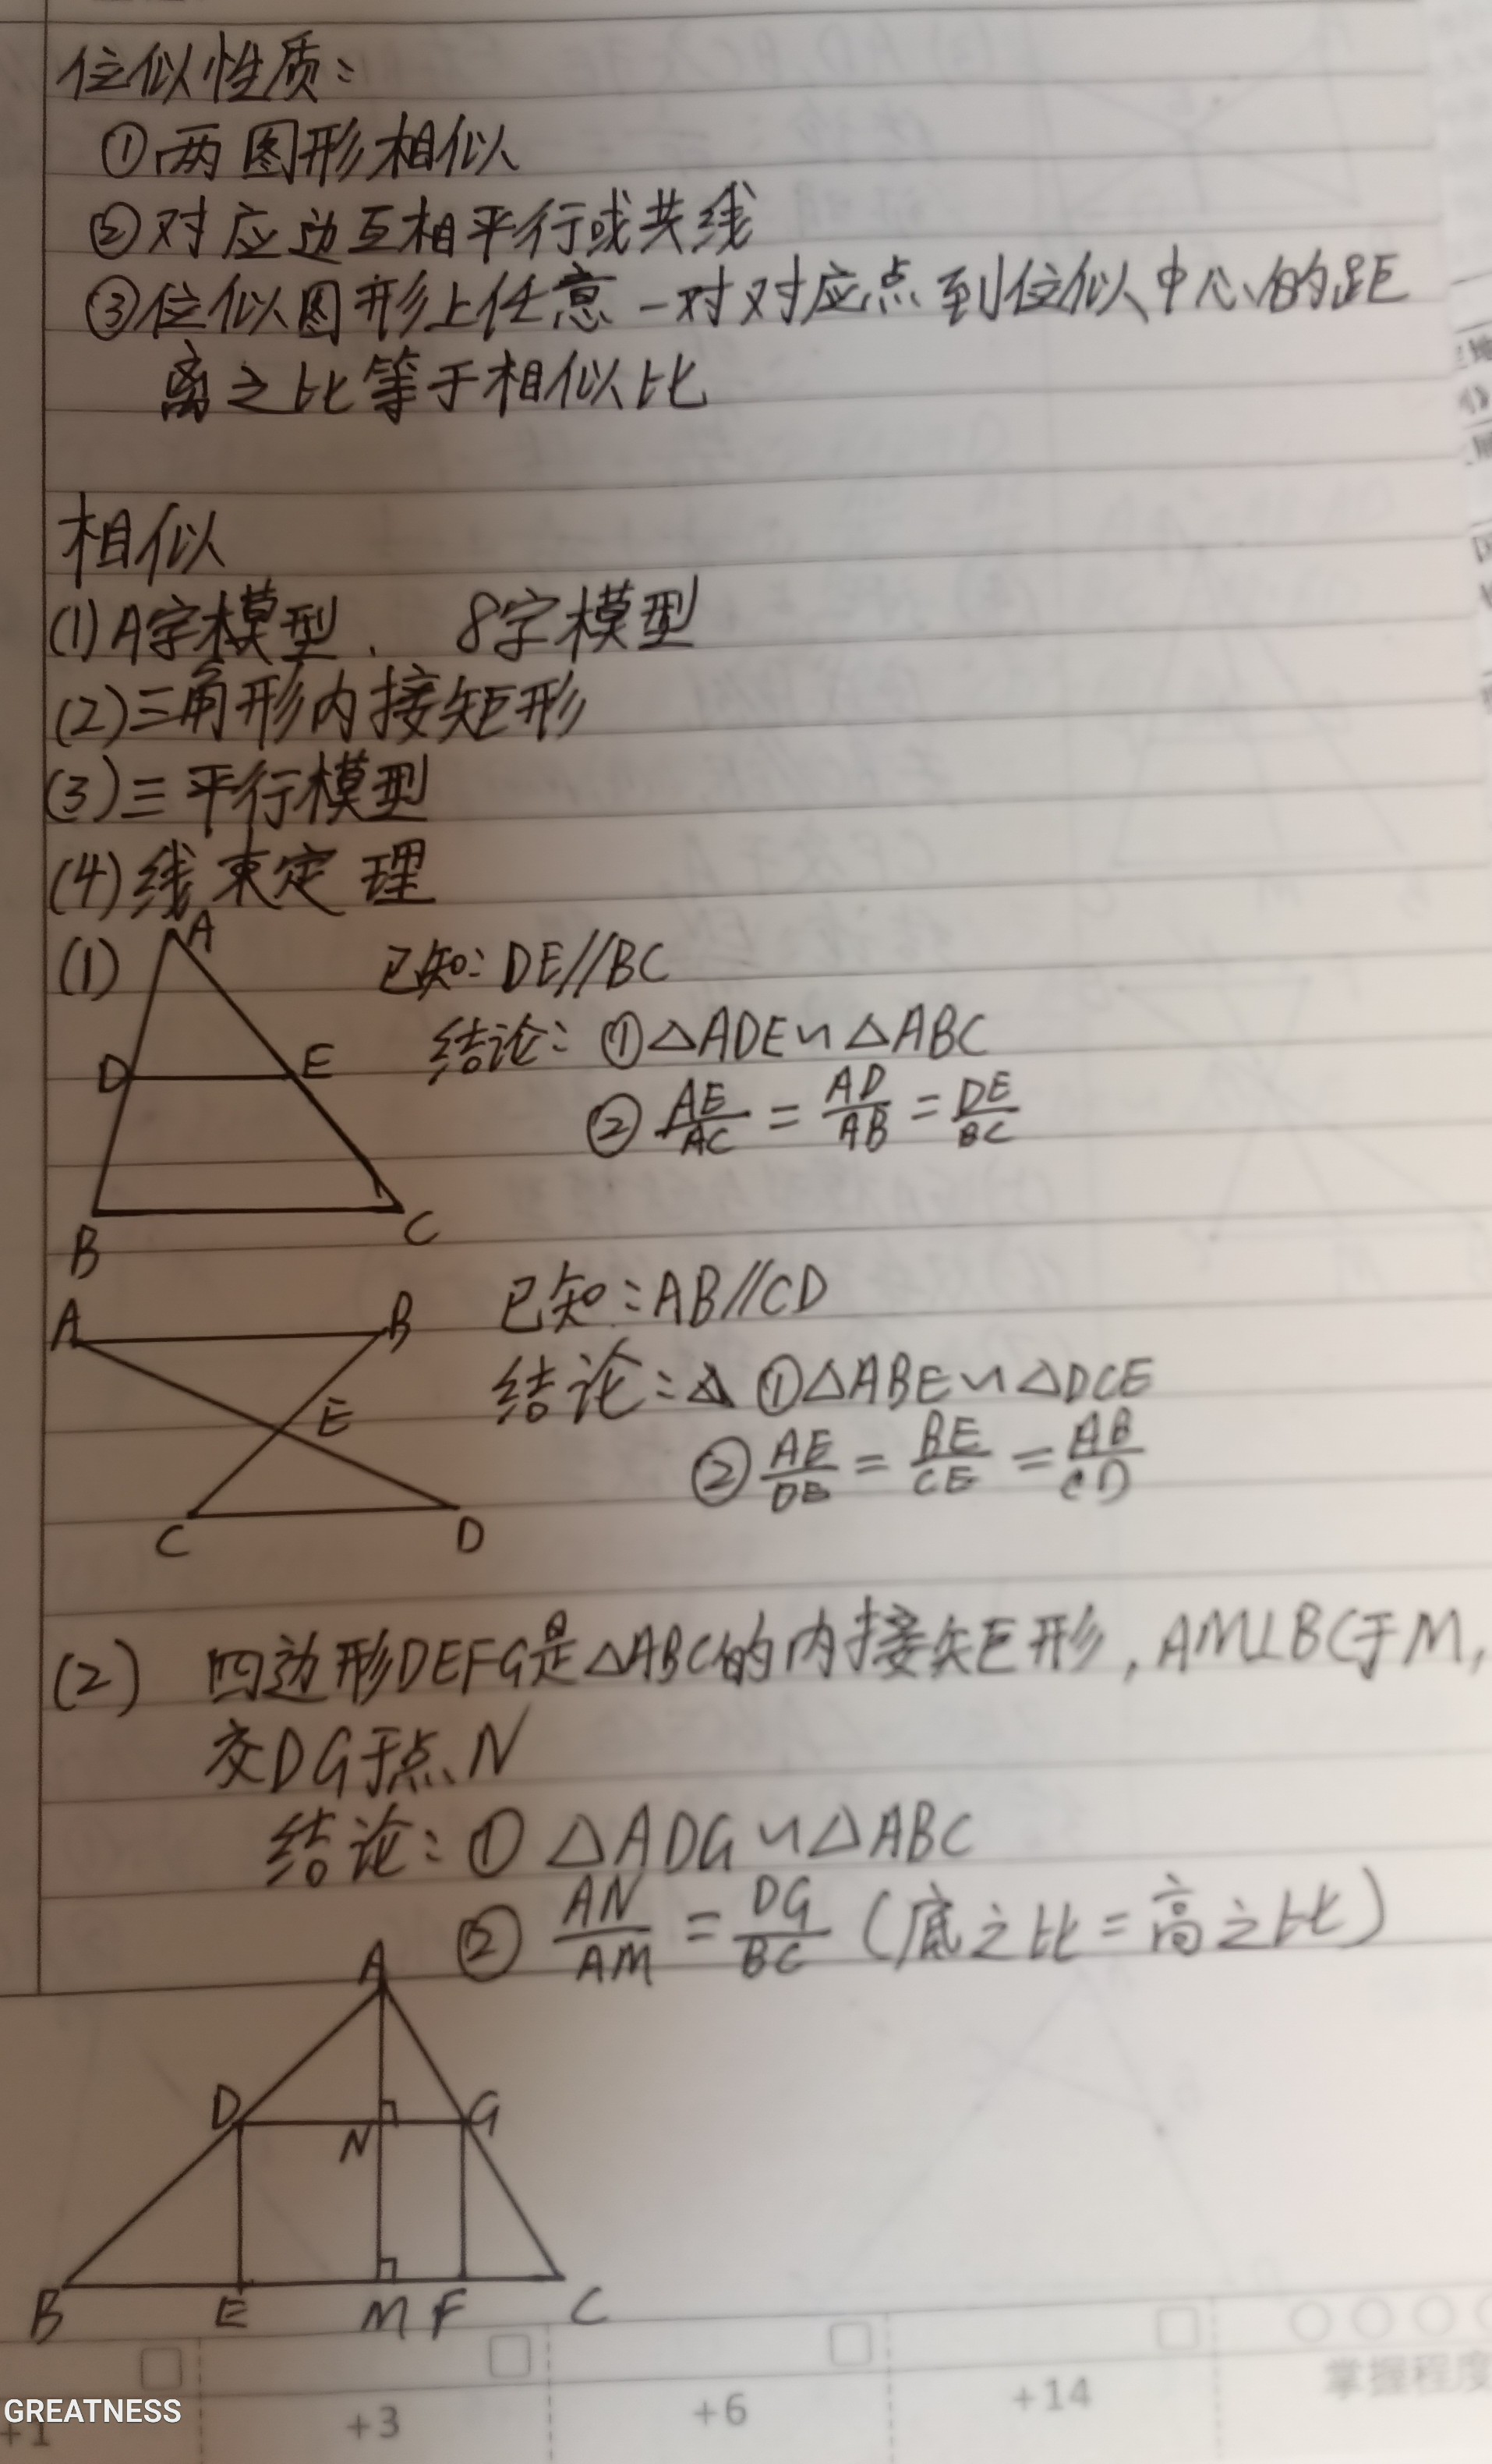 位似性质：
①两图形相似
②对应边互相平行或共线
③位似图形上任意一对对应点到位似中心的距
离之比等于相似比
相似
(1)A字模型、 8字模型
(2)三角形内接矩形
(3)三平行模型
(4)线束定理
(1)
A
D
E
B
C
已知：DE//BC
结论：①△ADE∽△ABC
②AE/AC=AD/AB=DE/BC
A
B
E
C
D
已知：AB//CD
结论：①△ABE∽△DCE
②AE/DE=BE/CE=AB/CD
(2) 四边形DEFG是△ABC的内接矩形，AM⊥BC于M，
交DG于点N
结论：①△ADG∽△ABC
②AN/AM=DG/BC（底之比=高之比）
A
D
N
G
B
E
M
F
C
+1
+3
+6
+14
掌握程度
GREATNESS